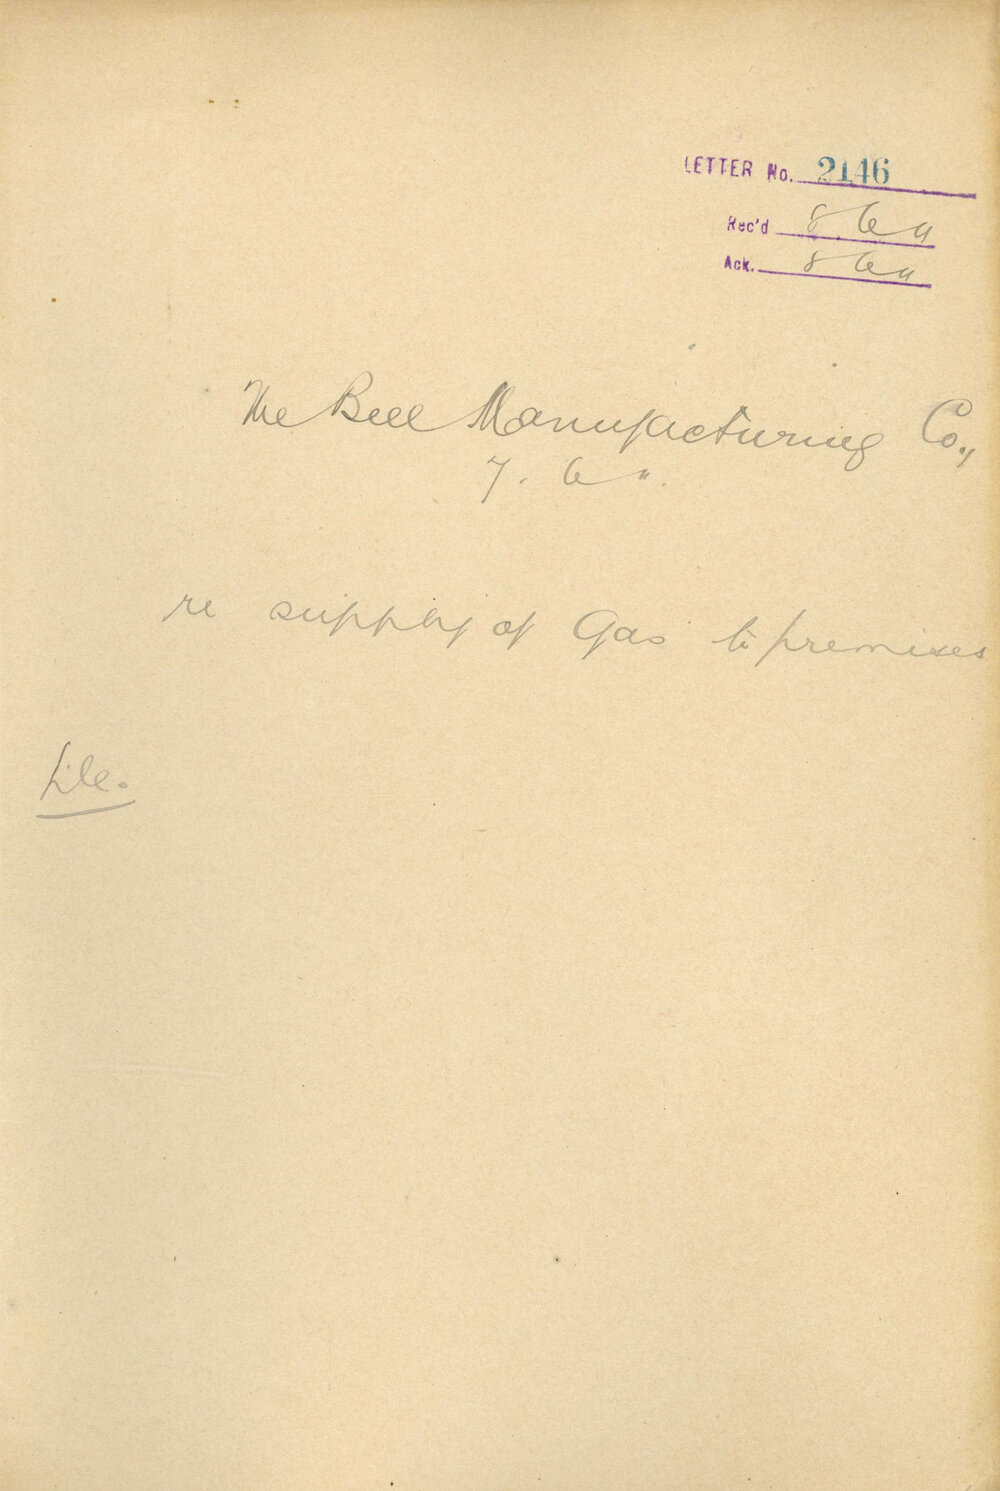 LETTER No. 2146
Rec'd 8. 6 11
Ack. 8 6 11
The Bell Manufacturing Co.,
7. 6 11.
re supply of Gas to premises
File.